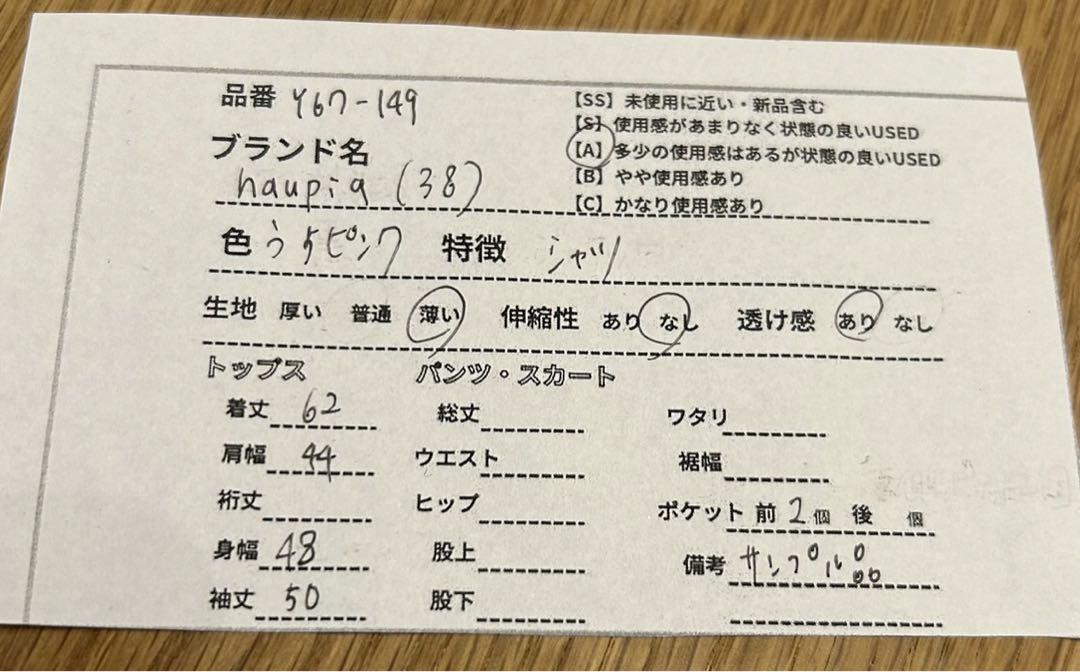 品番 Y67-149
ブランド名
haupia (38)
【SS】未使用に近い・新品含む
【S】使用感があまりなく状態の良いUSED
【A】多少の使用感はあるが状態の良いUSED
【B】やや使用感あり
【C】かなり使用感あり
色 うすピンク 特徴 シャツ
生地 厚い 普通 薄い 伸縮性 あり なし 透け感 あり なし
トップス パンツ・スカート
着丈 62 総丈 ワタリ
肩幅 44 ウエスト 裾幅
裄丈 ヒップ ポケット 前 2個 後 個
身幅 48 股上 備考 サンプル品
袖丈 50 股下